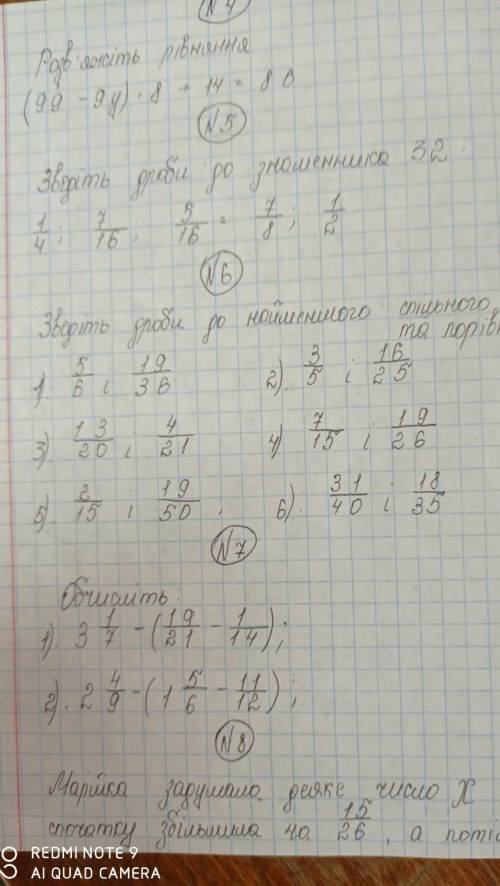 №4
Розв'яжіть рівняння
(99 - 9y) · 8 + 14 = 8 8
№5
Зведіть дроби до знаменника 32.
1/4; 7/16; 5/16 = 7/8; 1/2
№6
Зведіть дроби до найменшого спільного
та порівн
1). 5/6 і 19/36 2). 3/5 і 16/25
3) 13/20 і 4/21 4) 7/15 і 19/26
5). 2/15 і 19/50. 6). 31/40 і 18/35
№7
Обчисліть:
1). 3 1/7 - (19/21 - 1/14);
2). 2 4/9 - (1 5/6 - 11/12);
№8
Марійка задумала деяке число X
спочатку збільшила на 15/26, а поті
REDMI NOTE 9
AI QUAD CAMERA